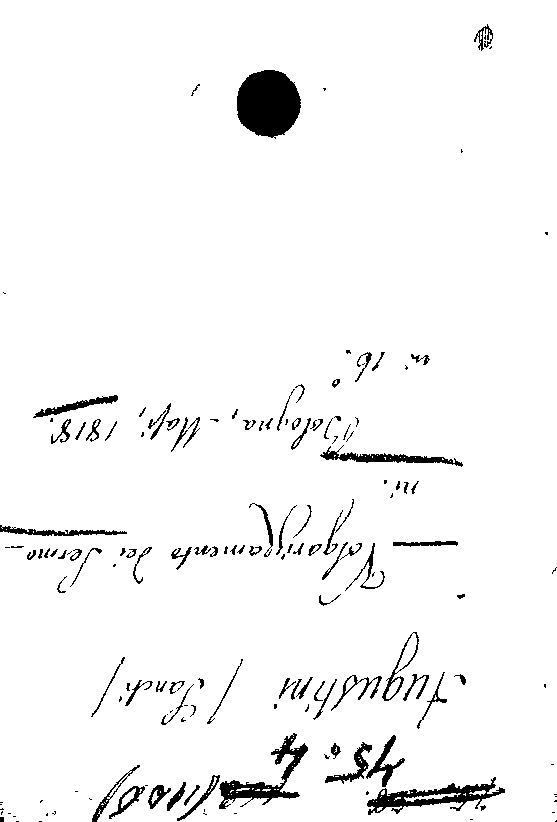 45 a 4
Augustini (Sancti)
— Volgarizzamento dei Sermo-
ni.
Bologna, Masi, 1818.
in 16.°